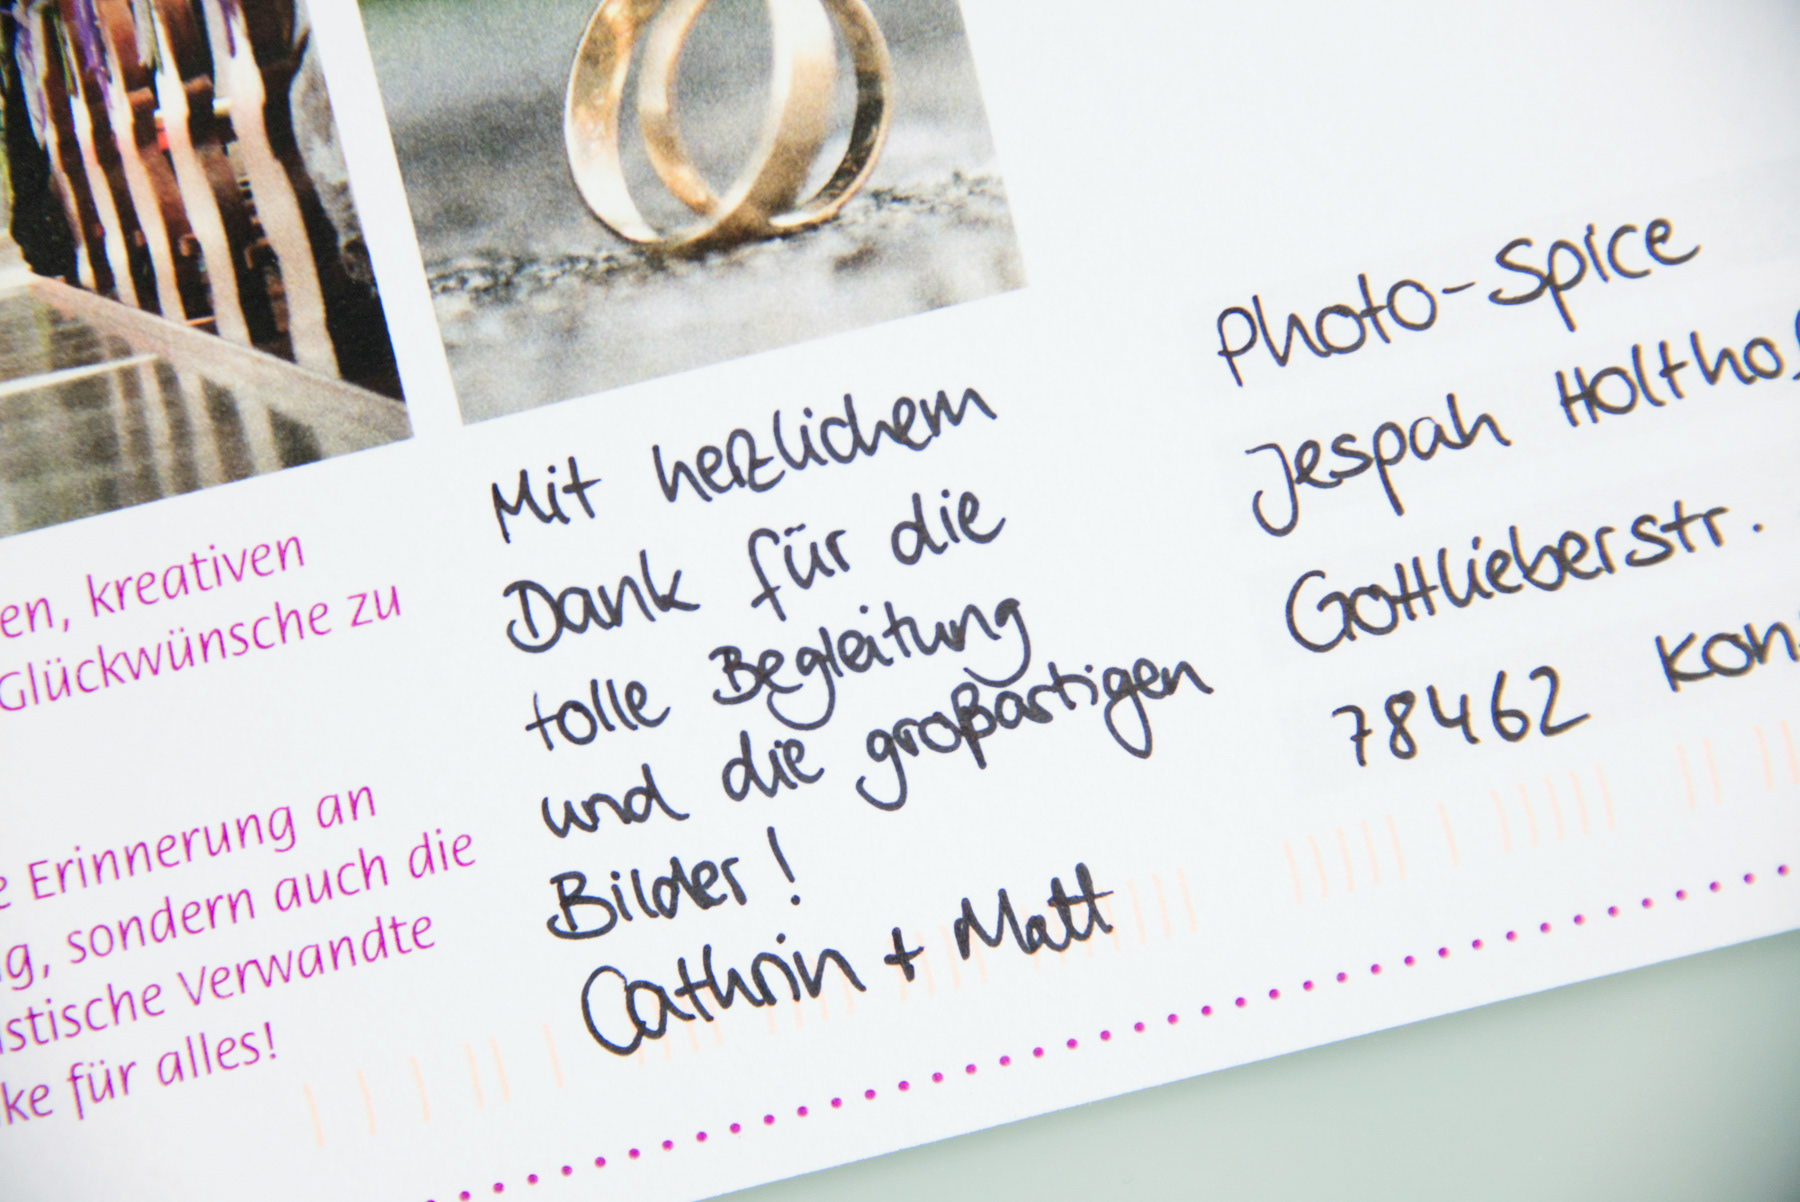 en, kreativen
Glückwünsche zu
e Erinnerung an
g, sondern auch die
stische Verwandte
ke für alles!
Mit herzlichem
Dank für die
tolle Begleitung
und die großartigen
Bilder!
Cathrin + Matt
Photo-Spice
Jespah Holthof
Gottlieberstr.
78462 Kons